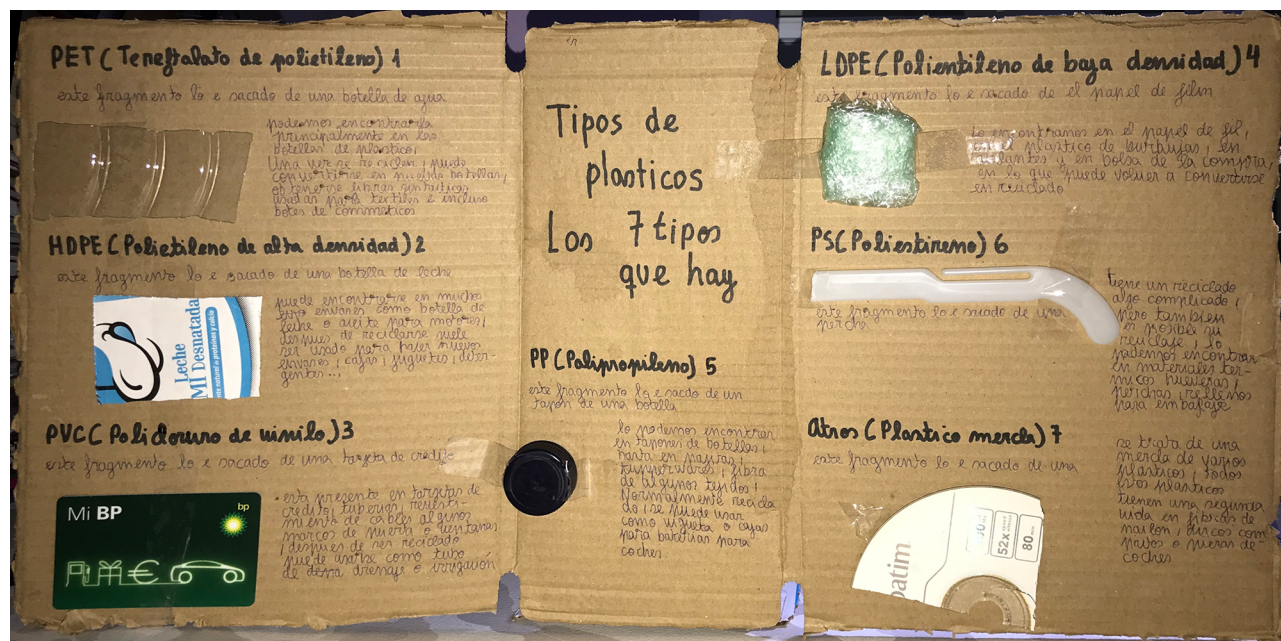 PET (Teneftalato de polietileno) 1
este fragmento lo e sacado de una botella de agua
podemos encontrarla
principalmente en las
botellas de plastico,
Una vez se reciclan, puede
convertirse en nuevas botellas,
obtenerse fibras sinteticas
usadas para textiles e incluso
botes de commeticos
HDPE (Polietileno de alta densidad) 2
este fragmento lo e sacado de una botella de leche
Leche
MI Desnatada
puede encontrarse en muchos
tipo envases como botella de
leche o aceite para motores,
despues de reciclarse suele
ser usado para hacer nuevos
envases, cajas, juguetes, deter-
gentes...
PVC (Policloruro de vinilo) 3
este fragmento lo e sacado de una targeta de credito
Mi BP
bp
esta presente en targetas de
credito, tuberias, revesti-
miento de cables algunos
marcos de puerta o ventanas
, despues de ser reciclado
puede usarse como tubo
de drenaje o irrigación
en
Tipos de
plasticos
Los 7 tipos
que hay
PP (Polipropileno) 5
este fragmento lo e sacdo de un
tapon de una botella
lo podemos encontrar
en tapones de botellas,
hasta en pajitas,
tupperwares, fibra
de algunos tejidos,
Normalmente recicla
do, se puede usar
como vigueta o cajas
para baterias para
coches.
LDPE (Polientileno de baja densidad) 4
este fragmento lo e sacado de el papel de film
lo encontramos en el papel de fil,
en el plastico de burbujas, en
y en bolsa de la compra,
en lo que puede volver a convertirse
en reciclado
PS (Poliestireno) 6
este fragmento lo e sacado de una
percha
tiene un reciclado
algo complicado,
pero tambien
es posible su
reciclaje, lo
podemos encontrar
en materiales ter-
micos hueveras,
perchas, rellenos
para embalaje
Otros (Plastico mezcla) 7
este fragmento lo e sacado de una
52x
80
Datim
se trata de una
mezcla de varios
plasticos, todos
estos plasticos
tienen una segunda
vida en fibras de
nailon, discos com
pactos o piezas de
coches